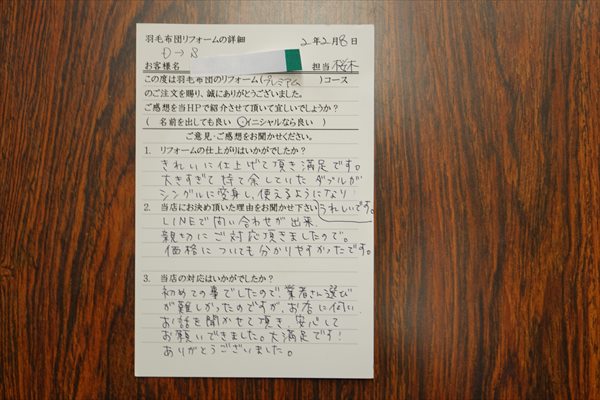 羽毛布団リフォームの詳細 2年2月8日
D→S
お客様名 担当 桜木
この度は羽毛布団のリフォーム(プレミアム)コース
のご注文を賜り、誠にありがとうございました。
ご感想を当HPで紹介させて頂いて宜しいでしょうか?
( 名前を出しても良い ・ イニシャルなら良い )
ご意見・ご感想をお聞かせください。
1. リフォームの仕上がりはいかがでしたか?
きれいに仕上げて頂き満足です。
大きすぎて持て余していたダブルが
シングルに変身し、使えるようになり
うれしいです。
2. 当店にお決め頂いた理由をお聞かせ下さい
LINEで問い合わせが出来、
親切にご対応頂きましたので。
価格についても分かりやすかったです。
3. 当店の対応はいかがでしたか?
初めての事でしたので、業者さん選び
が難しかったのですが、お店に伺い
お話を聞かせて頂き、安心して
お願いできました。大満足です!
ありがとうございました。